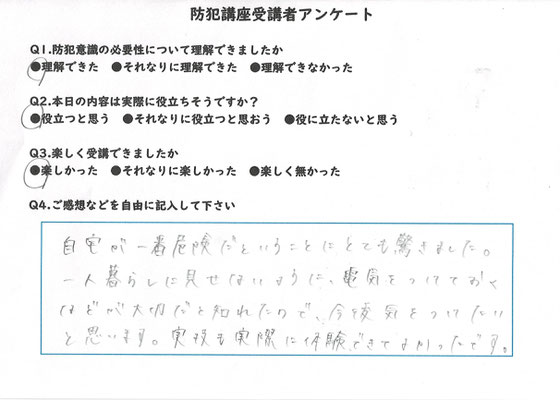 防犯講座受講者アンケート
Q1.防犯意識の必要性について理解できましたか
●理解できた ●それなりに理解できた ●理解できなかった
Q2.本日の内容は実際に役立ちそうですか？
●役立つと思う ●それなりに役立つと思おう ●役に立たないと思う
Q3.楽しく受講できましたか
●楽しかった ●それなりに楽しかった ●楽しく無かった
Q4.ご感想などを自由に記入して下さい
自宅が一番危険だということにとても驚きました。
一人暮らしに見せないように、電気をつけておく
などが大切だと知れたので、今後気をつけたい
と思います。実技も実際に体験できてよかったです。